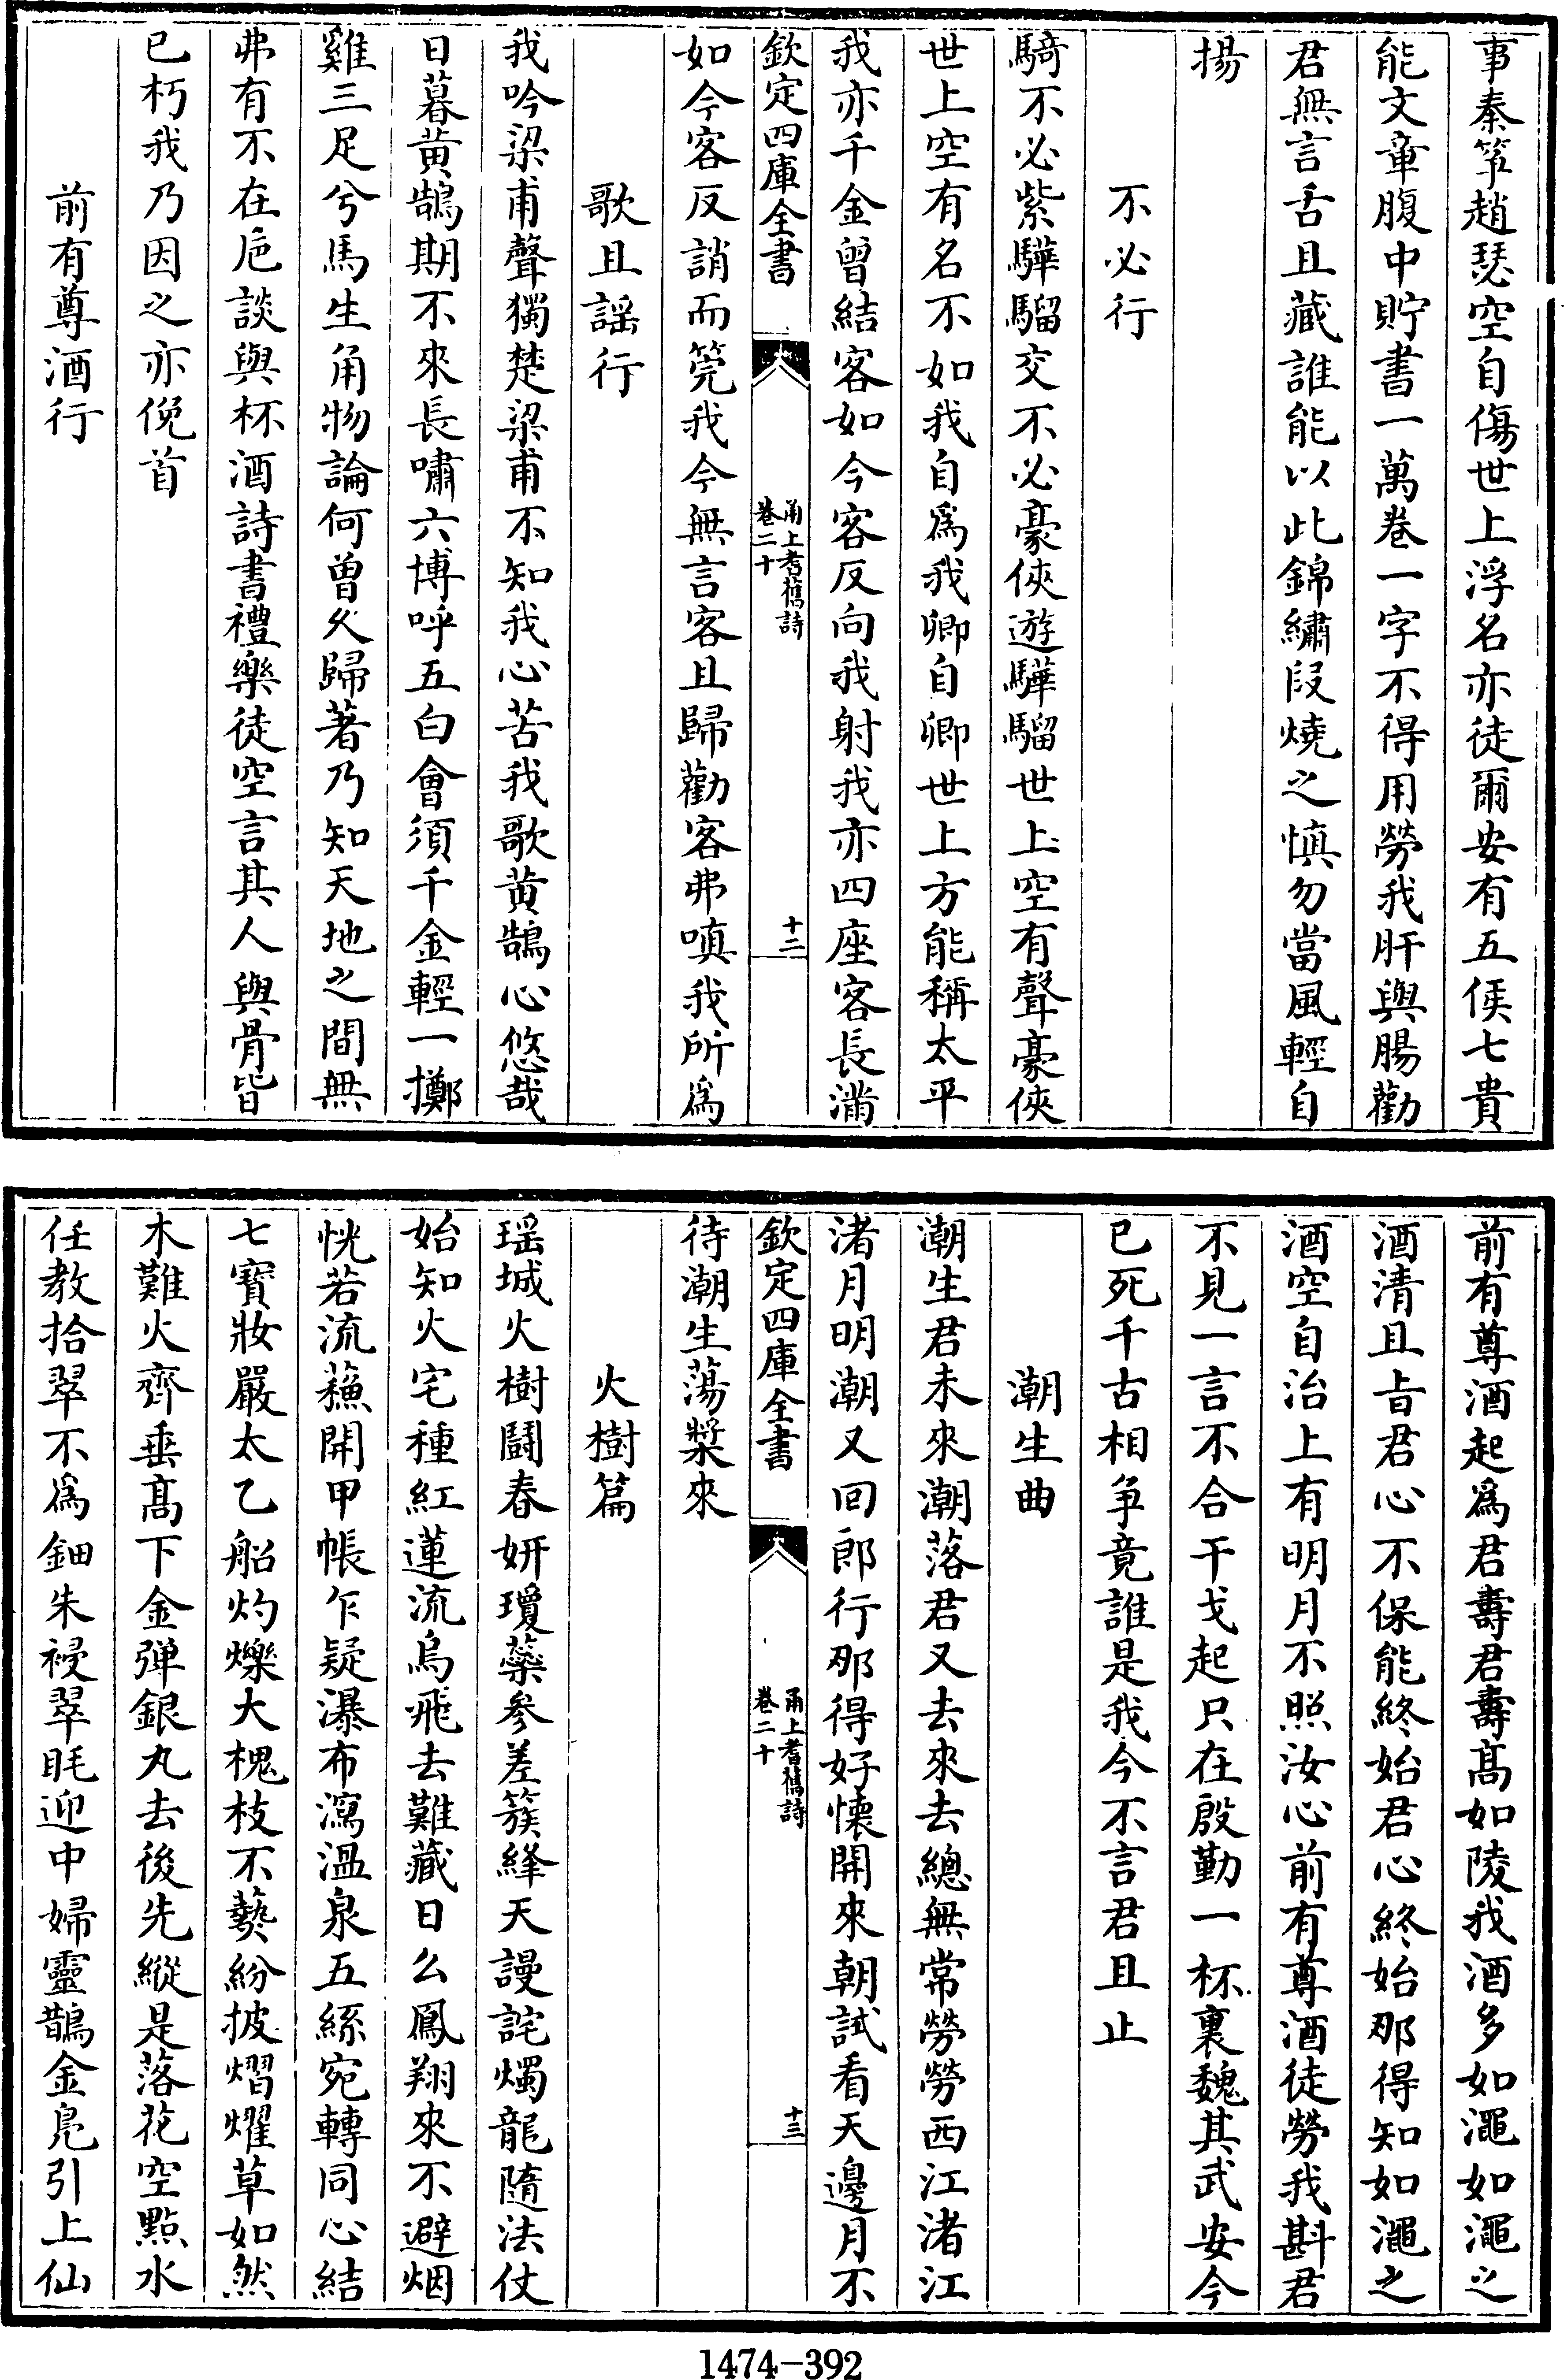 事秦箏趙瑟空自傷世上浮名亦徒爾安有五侯七貴
能文章腹中貯書一萬卷一字不得用勞我肝與腸勸
君無言舌且藏誰能以此錦繡段燒之慎勿當風輕自
揚
不必行
騎不必紫驊騮交不必豪俠遊驊騮世上空有聲豪俠
世上空有名不如我自為我卿自卿世上方能稱太平
我亦千金曾結客如今客反向我射我亦四座客長滿
欽定四庫全書
甬上耆舊詩
卷二十
十二
如今客反誚而筦我今無言客且歸勸客弗嗔我所為
歌且謡行
我吟梁甫聲獨楚梁甫不知我心苦我歌黄鵠心悠哉
日暮黄鵠期不來長嘯六博呼五白會須千金輕一擲
雞三足兮馬生角物論何曾久歸著乃知天地之間無
弗有不在巵談與杯酒詩書禮樂徒空言其人與骨皆
已朽我乃因之亦俛首
前有尊酒行
前有尊酒起為君壽君壽髙如陵我酒多如澠如澠之
酒清且旨君心不保能終始君心終始那得知如澠之
酒空自治上有明月不照汝心前有尊酒徒勞我斟君
不見一言不合干戈起只在殷勤一杯裏魏其武安今
已死千古相争竟誰是我今不言君且止
潮生曲
潮生君未來潮落君又去來去總無常勞勞西江渚江
渚月明潮又回郎行那得好懐開來朝試看天邊月不
欽定四庫全書
甬上耆舊詩
卷二十
十三
待潮生蕩槳來
火樹篇
瑶城火樹鬭春妍瓊蘂參差簇絳天謾詫燭龍隨法仗
始知火宅種紅蓮流烏飛去難藏日么鳳翔來不避烟
恍若流蘓開甲帳乍疑瀑布瀉温泉五絲宛轉同心結
七寳妝嚴太乙船灼爍大槐枝不爇紛披熠燿草如然
木難火齊垂髙下金弾銀丸去後先縱是落花空點水
任教拾翠不為鈿朱祲翠眊迎中婦靈鵲金鳬引上仙
1474-392